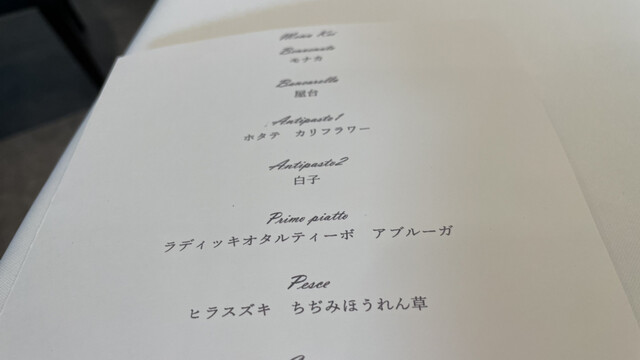 Menu Kir
Benvenuto
モナカ
Bancarella
屋台
Antipasto1
ホタテ カリフラワー
Antipasto2
白子
Primo piatto
ラディッキオタルティーボ アブルーガ
Pesce
ヒラスズキ ちぢみほうれん草